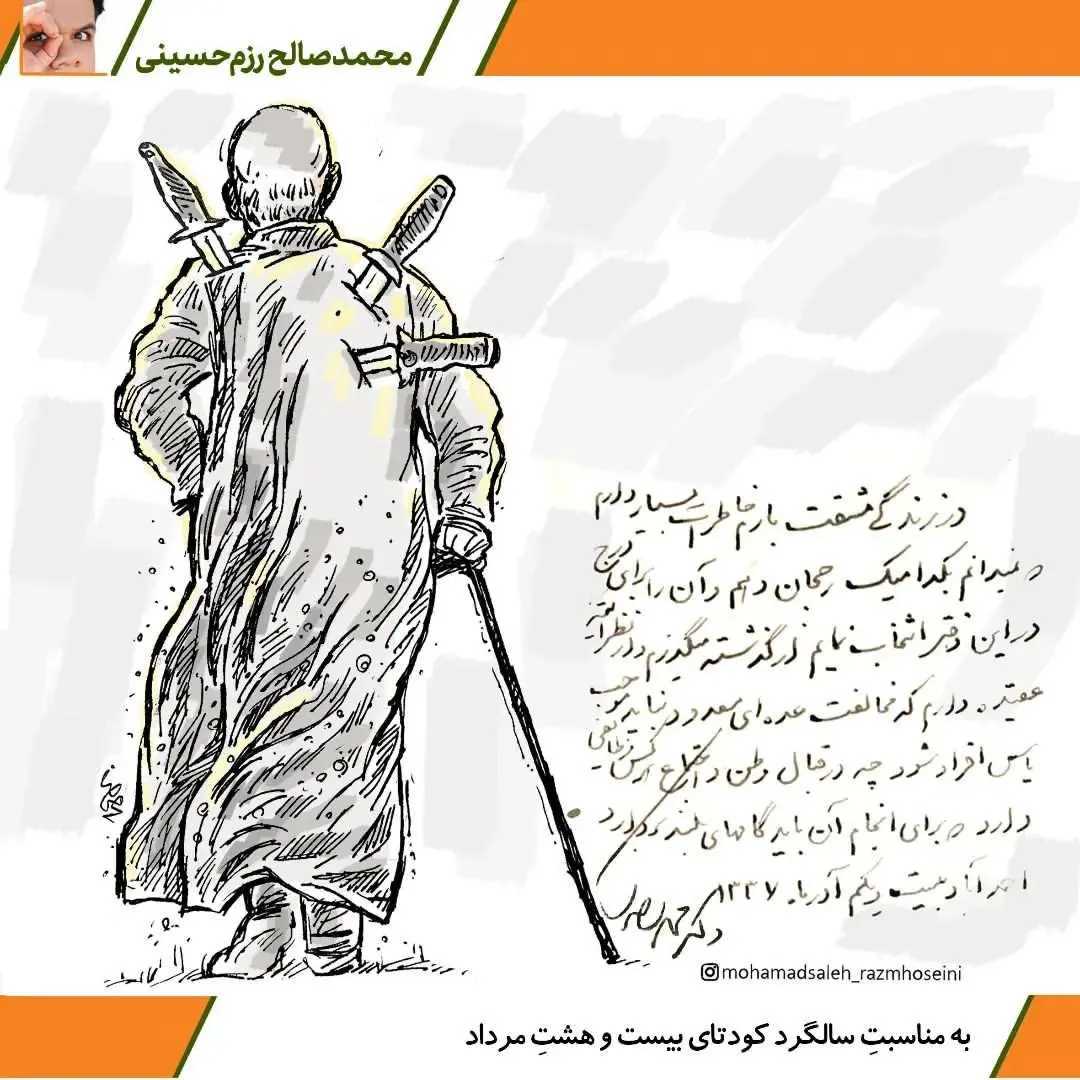 محمدصالح رزم‌حسینی
در زندگی مشقت بارم خاطرات بسیار دارم
و نمیدانم بکدامیک رجحان دهم و آن را برای درج
در این دفتر انتخاب نمایم از گذشته میگذرم و از نظر آتیه
عقیده دارم که مخالفت عده ای معدود نباید موجب
یأس افراد شود چه در قبال وطن و اجتماع هر کس وظایفی
دارد و برای انجام آن باید گامهای بلند بردارد
احمدآباد بیست و یکم آذرماه ۱۳۳۷
دکتر محمد مصدق
mohamadsaleh_razmhoseini
به مناسبتِ سالگرد کودتای بیست و هشتِ مرداد